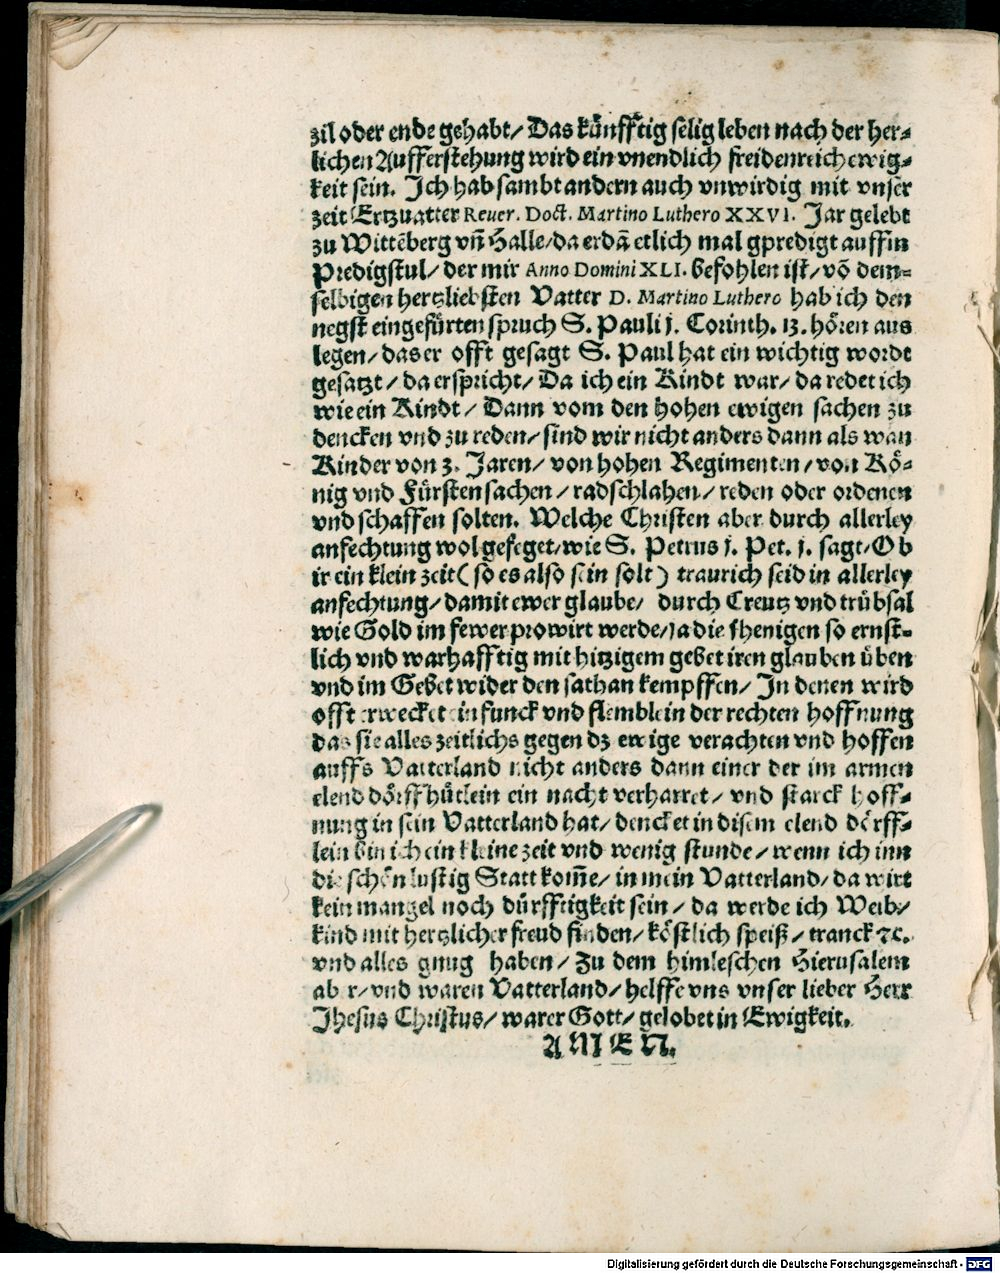 zil oder ende gehabt/ Das künfftig selig leben nach der her⸗
lichen Aufferstehung wird ein vnendlich freidenreich ewig⸗
keit sein. Ich hab sambt andern auch vnwirdig mit vnser
zeit Ertzuatter Reuer. Doct. Martino Luthero XXVI. Jar gelebt
zu Wittēberg vn̄ Halle/ da er dā etlich mal gpredigt auff in
Predigstul/ der mir Anno Domini XLI. befohlen ist/ vō dem⸗
selbigen hertzliebsten Vatter D. Martino Luthero hab ich den
negst eingefürten spruch S. Pauli j. Corinth. 13. hören aus
legen/ das er offt gesagt S. Paul hat ein wichtig wordt
gesatzt/ da er spricht/ Da ich ein Kindt war/ da redet ich
wie ein Kindt/ Dann vom den hohen ewigen sachen zu
dencken vnd zu reden/ sind wir nicht anders dann als wan
Kinder von 3. Jaren/ von hohen Regimenten/ von Kö⸗
nig vnd Fürsten sachen/ radschlahen/ reden oder ordenen
vnd schaffen solten. Welche Christen aber durch allerley
anfechtung wol gefeget/ wie S. Petrus j. Pet. j. sagt/ Ob
ir ein klein zeit (so es also sein solt) traurich seid in allerley
anfechtung/ damit ewer glaube/ durch Creutz vnd trübsal
wie Gold im fewer prowirt werde/ ja die jhenigen so ernst⸗
lich vnd warhafftig mit hitzigem gebet iren glauben üben
vnd im Gebet wider den sathan kempffen/ In denen wird
offt erwecket ein funck vnd flemblein der rechten hoffnung
das sie alles zeitlichs gegen dz ewige verachten vnd hoffen
auffs Vatterland nicht anders dann einer der im armen
elend dörffhütlein ein nacht verharret/ vnd starck hoff⸗
nung in sein Vatterland hat/ dencket in disem elend dörff⸗
lein bin ich ein kleine zeit vnd wenig stunde/ wenn ich inn
die schön lustig Statt kom̄e/ in mein Vatterland/ da wirt
kein mangel noch dürfftigkeit sein/ da werde ich Weib/
kind mit hertzlicher freud finden/ köstlich speiß/ tranck ꝛc.
vnd alles gnug haben/ Zu dem himleschen Hierusalem
aber/ vnd waren Vatterland/ helffe vns vnser lieber Herr
Jhesus Christus/ warer Gott/ gelobet in Ewigkeit.
AMEN.
Digitalisierung gefördert durch die Deutsche Forschungsgemeinschaft - DFG